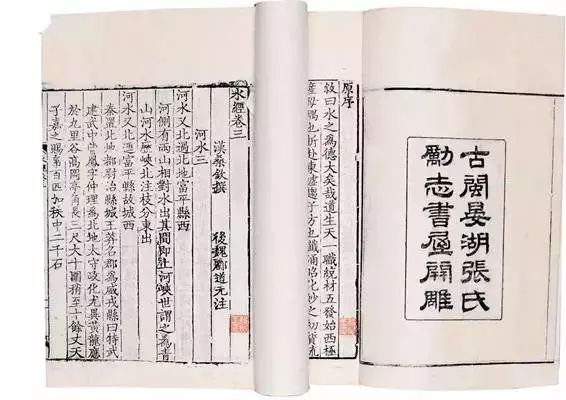 古閩晏湖張氏
勵志書屋開雕
原序
敍曰水之為德大矣哉道生天一職統材五發始西極
水經卷三
漢桑欽撰　後魏酈道元注
河水三
河水又北過北地富平縣西
河側有兩山相對水出其間即上河峽世謂之為青
山河水歷峽北注枝分東出
河水又北逕富平縣故城西
秦置北地都尉治縣城王莽名郡為威戎縣曰特武
建武中曹鳳字仲理為北地太守政化尤異黃龍應
於九里谷高岡亭角長三尺大十圍稍至十餘丈天
子嘉之賜帛百匹加秩中二千石